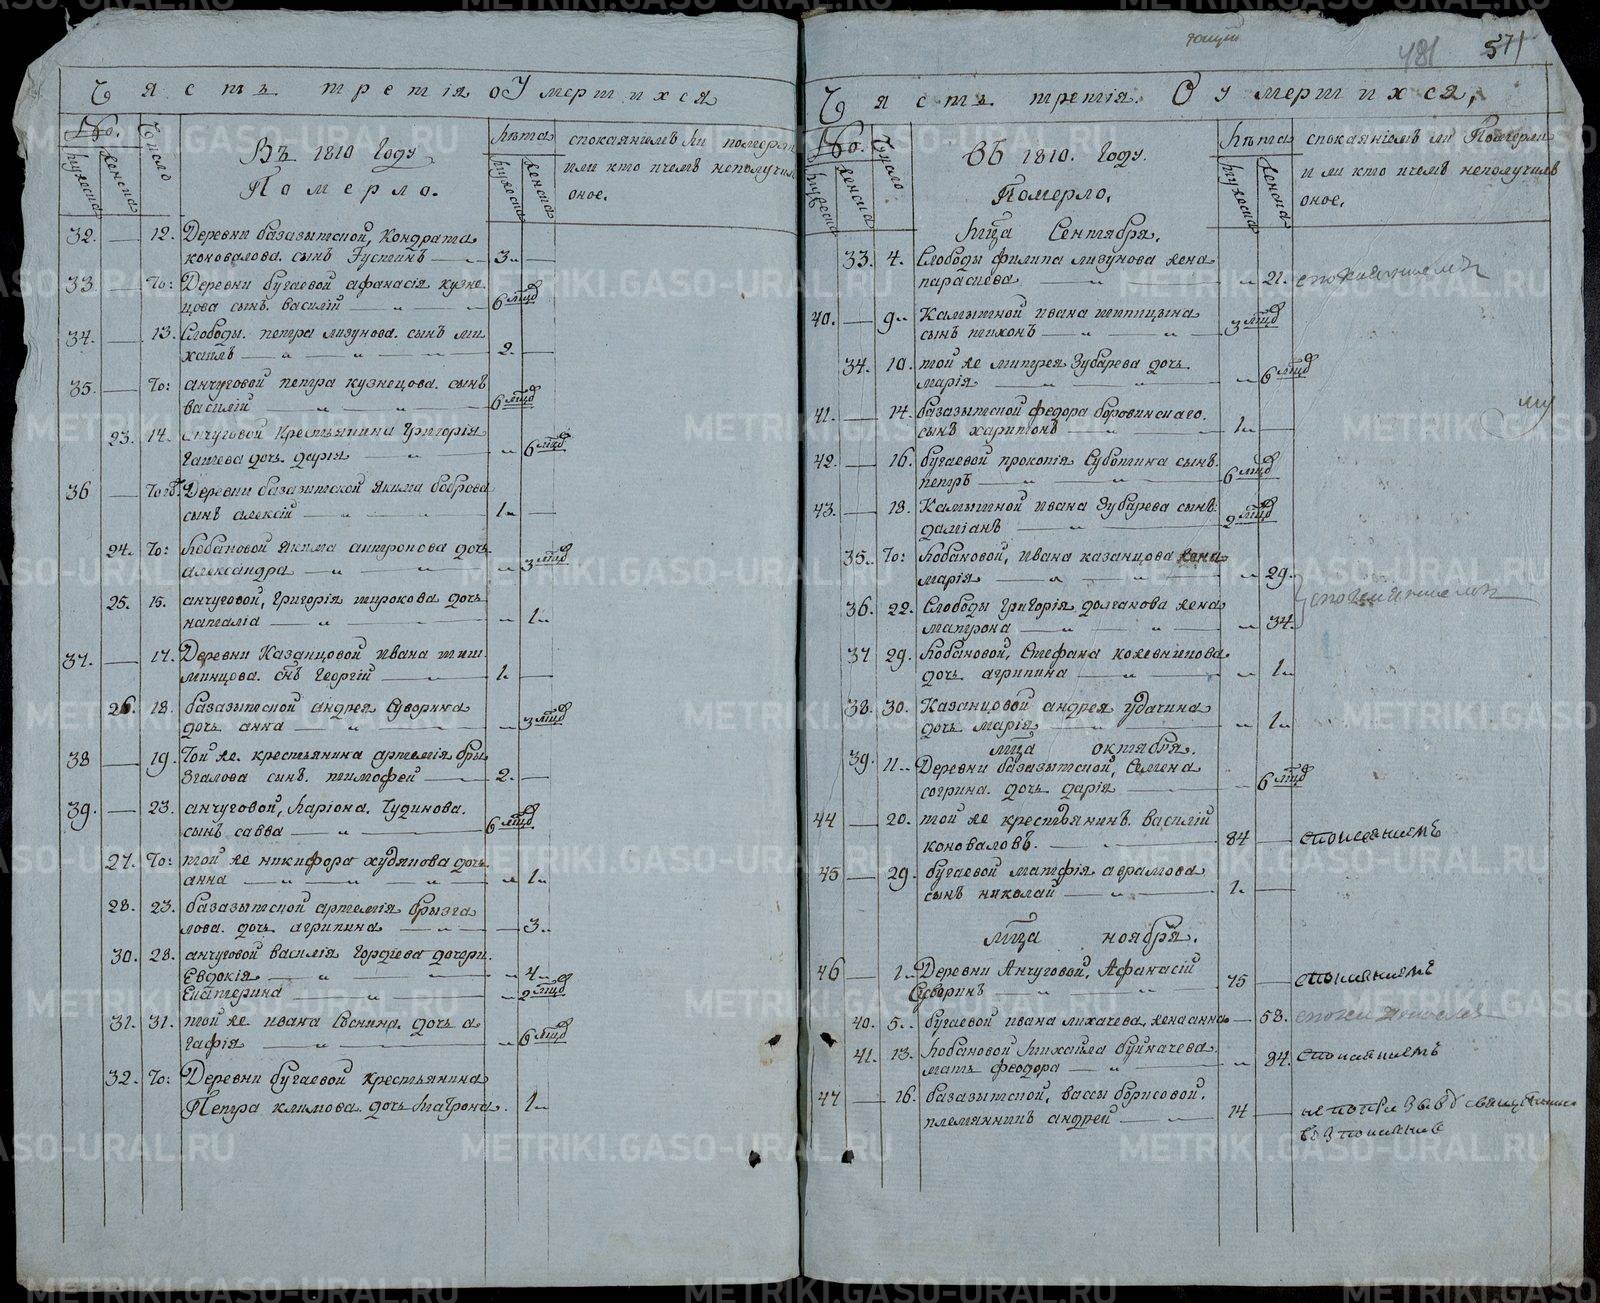 Часть третія о Умертихся
No. Число ВЪ 1810 Году лѣта спокаяніемъ ли померли
мужеска женска Померло. мужеска женска или кто и чемъ неполучил
оное.
32. — 12. Деревни базазытской, Кондрата
коновалова сынъ Густинъ — 3. —
33. — То: Деревни бугаевой афанасія кузне
цова сынъ василій — 6 мцд
34. — 13. Слободы петра лизунова сынъ ми
хаилъ — 2. —
35. — То: анчуговой петра кузнецова. сынъ
василій — 6 мцд
23. 14. анчуговой Крестьянина Григорія
дочь дарія — 6 мцд
36 — Тогож. Деревни базазитской якима боброва
сынъ алексій — 1 —
24. То: лобановой якима антропова дочь
александра — 3 мцд
25. 15. анчуговой, Григорія широкова дочь
наталіа — 1
37. — 17. Деревни Казанцовой ивана
сӊъ Георгій — 1. —
26. 18. базазытской андрея Суворина
дочь анна — 3 мцд
38 — 19. Той же. крестьянина артемія бры
згалова синъ. тимофей — 2. —
39. — 23. анчуговой, ларіона. Чудинова.
сынъ савва — 6 мцд
27. То: той же никифора худякова дочь
анна — 1
28. 23. базазытской артемія брызга
лова. дочь агрипина — 3
30. 28. анчуговой василія Гордіева дочери
Евдокія — 4
Екатерина — 2 мцд
31. 31. той же ивана Соснина. дочь а
гафія — 6 мцд
32. То: Деревни бугаевой Крестьянина
Петра климова дочь матрона. 1
481 571
Часть третія О умертихся,
No. Число ВЪ 1810. Году. лѣта спокаяніемъ ли Померли
мужеска женска Померло. мужеска женска или кто и чемъ неполучилъ
оное.
мца Сентября.
33. 4. Слободы филипа лизунова жена
параскева — 21. спокаяніемъ
40. — 9. Камытной ивана птицына
сынъ тихонъ — 3 мцд
34. 10. той же митрея Зубарева дочь
марія — 6 мцд
41. — 14. базазытской федора боровинскаго.
сынъ харитонъ — 1 —
42. — 16. бугаевой прокопія Суботина сынъ
петръ — 6 мцд
43. — 18. Камытной ивана Зубарева сынъ
даміанъ — 2 мцд
35. То: лобановой, ивана казанцова жена
марія — 29.
36. 22. Слободы Григорія долганова жена спокаяніемъ
матрона — 34.
37 29. лобановой, Стефана кожевникова
дочь агрипина — 1
38. 30. Казанцовой андрея удачина
дочь марія — 1
мца октября.
39. 11. Деревни базазытской, Семена
согрина. дочь дарія — 6 мцд
44 — 20. той же крестьянинъ василій
коноваловъ. — 84 — спокаяніемъ
45 — 29. бугаевой матфія аврамова
сынъ николай — 1. —
мца ноября.
46 — 1. Деревни Анчуговой, Афанасій
Суворинъ — 75 — спокаяніемъ
40. 5. бугаевой ивана лихачева. жена анна — 58. спокаяніемъ
41. 13. лобановой михаила буйначева.
мать феодора — 84. спокаяніемъ
47 — 16. базазытской, вассы борисовой.
племянникъ андрей — 14 —